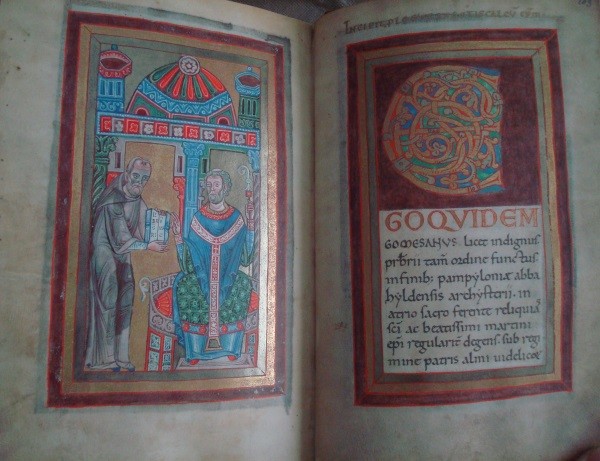 GOQVIDEM
GOMESANUS. licet indignus
prbrii tam̄ ordine functus
in finib; pampilonae abba
hyldensis archysterii. in
atrio sacro ferente reliquia
sci ac beatissimi martini
epi regularit degens sub regi
mine patris almi videlicet